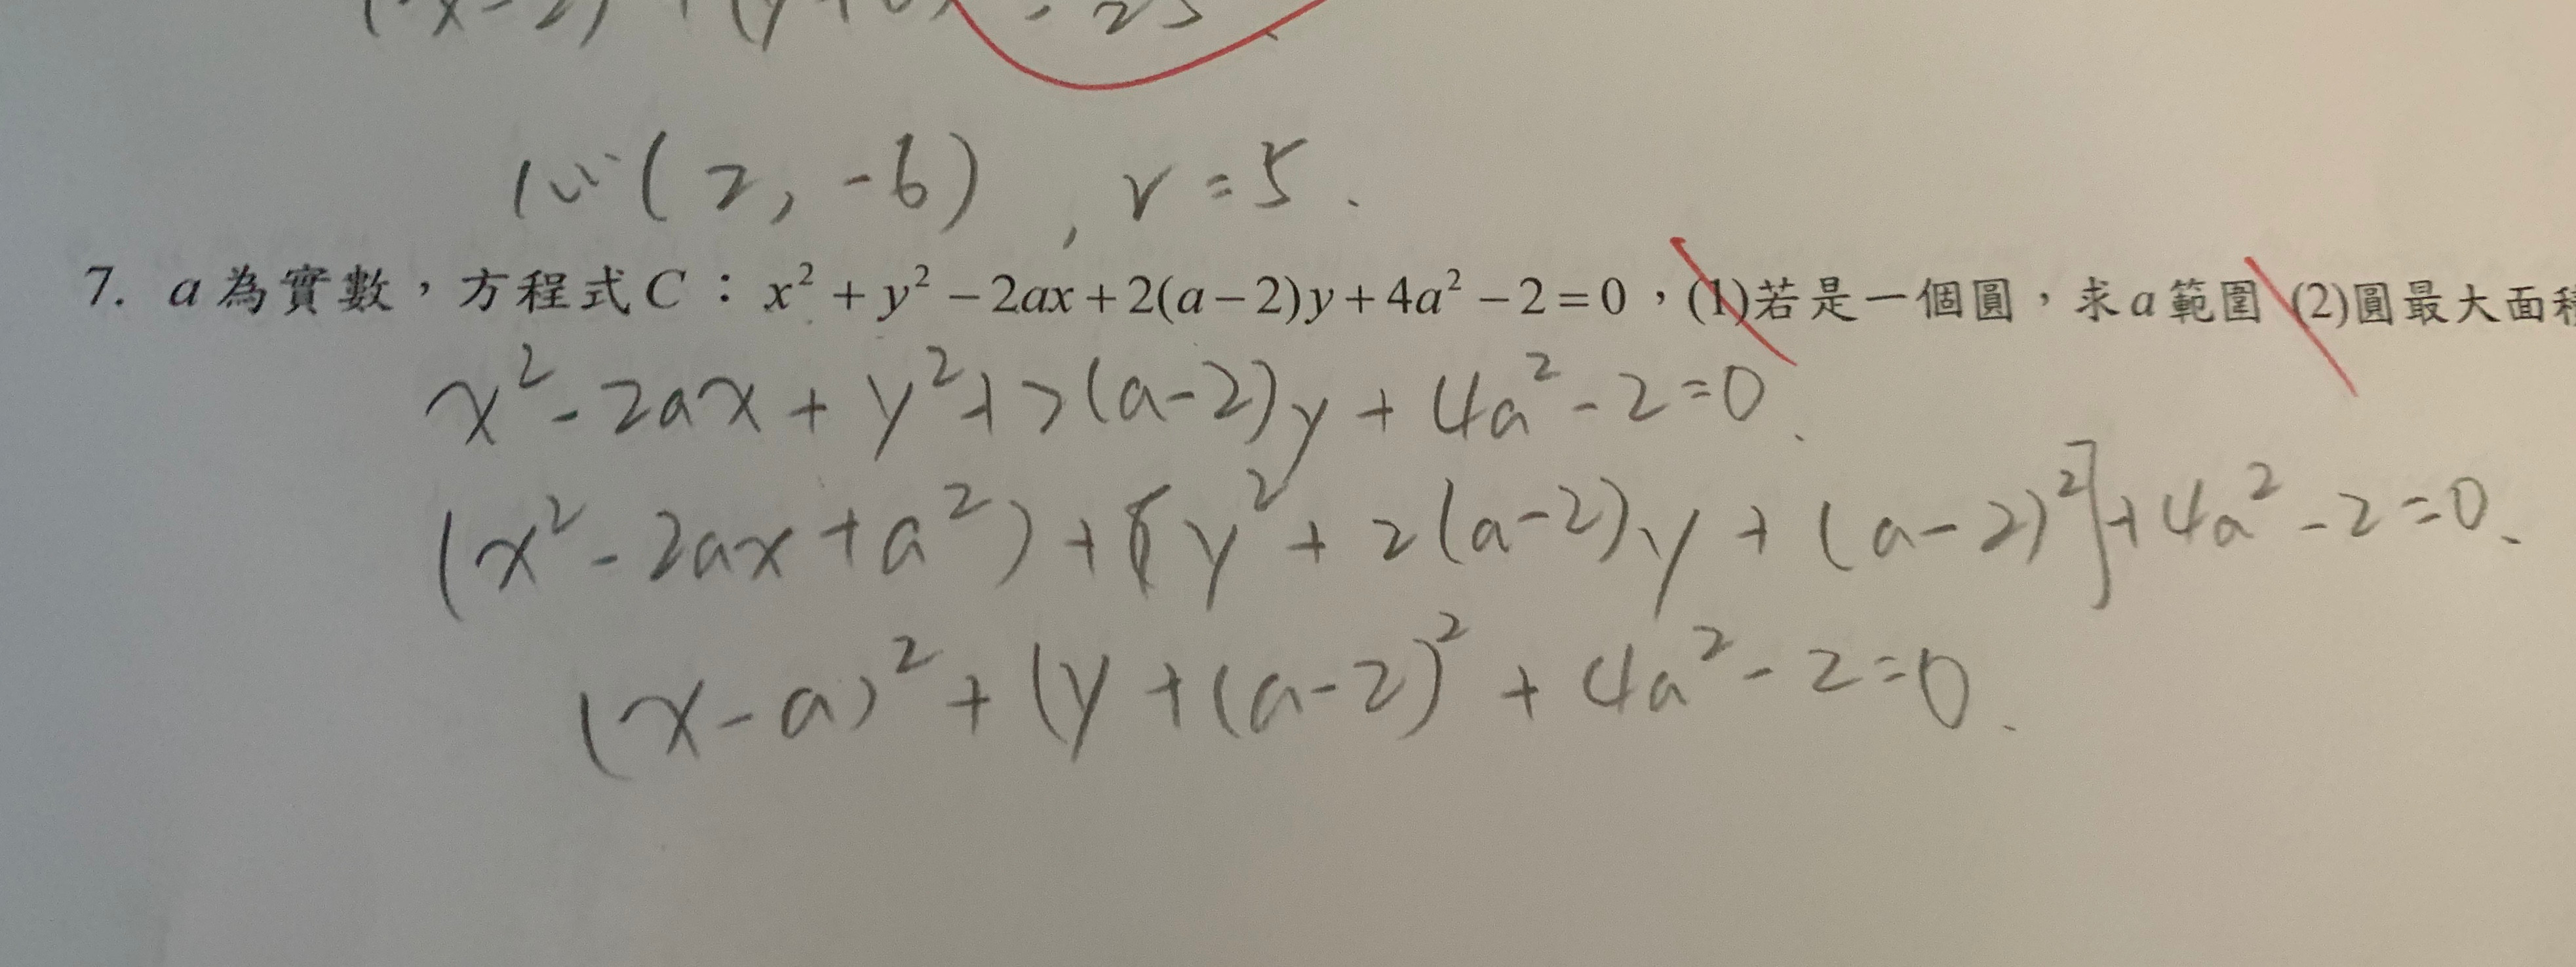 心(2, -6) , r=5.
7. a為實數，方程式C：x²+y²-2ax+2(a-2)y+4a²-2=0，(1)若是一個圓，求a範圍 (2)圓最大面
x²-2ax+y²+2(a-2)y+4a²-2=0.
(x²-2ax+a²)+[y²+2(a-2)y+(a-2)²]+4a²-2=0.
(x-a)²+(y+(a-2)²+4a²-2=0.